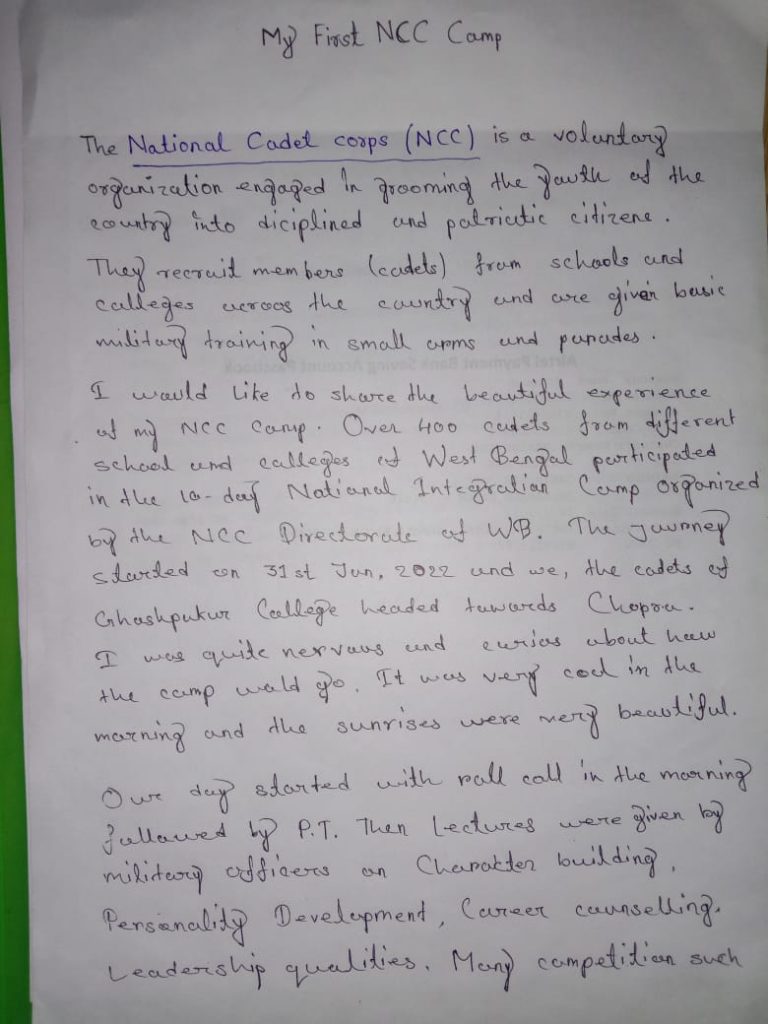 My First NCC Camp
The National Cadet corps (NCC) is a voluntary
organization engaged in grooming the youth of the
country into diciplined and patriotic citizene.
They recruit members (cadets) from schools and
colleges across the country and are given basic
military training in small arms and parades.
I would like to share the beautiful experience
of my NCC Camp. Over 400 cadets from different
school and colleges of West Bengal participated
in the 10-day National Integration Camp organized
by the NCC Directorate of WB. The journey
started on 31st Jan, 2022 and we, the cadets of
Ghoshpukur College headed towards Chopra.
I was quite nervous and curios about how
the camp wald go. It was very cool in the
morning and the sunrises were very beautiful.
Our day started with roll call in the morning
followed by P.T. Then Lectures were given by
military officers on Charakter building,
Personality Development, Career counselling.
Leadership qualities. Many competition such